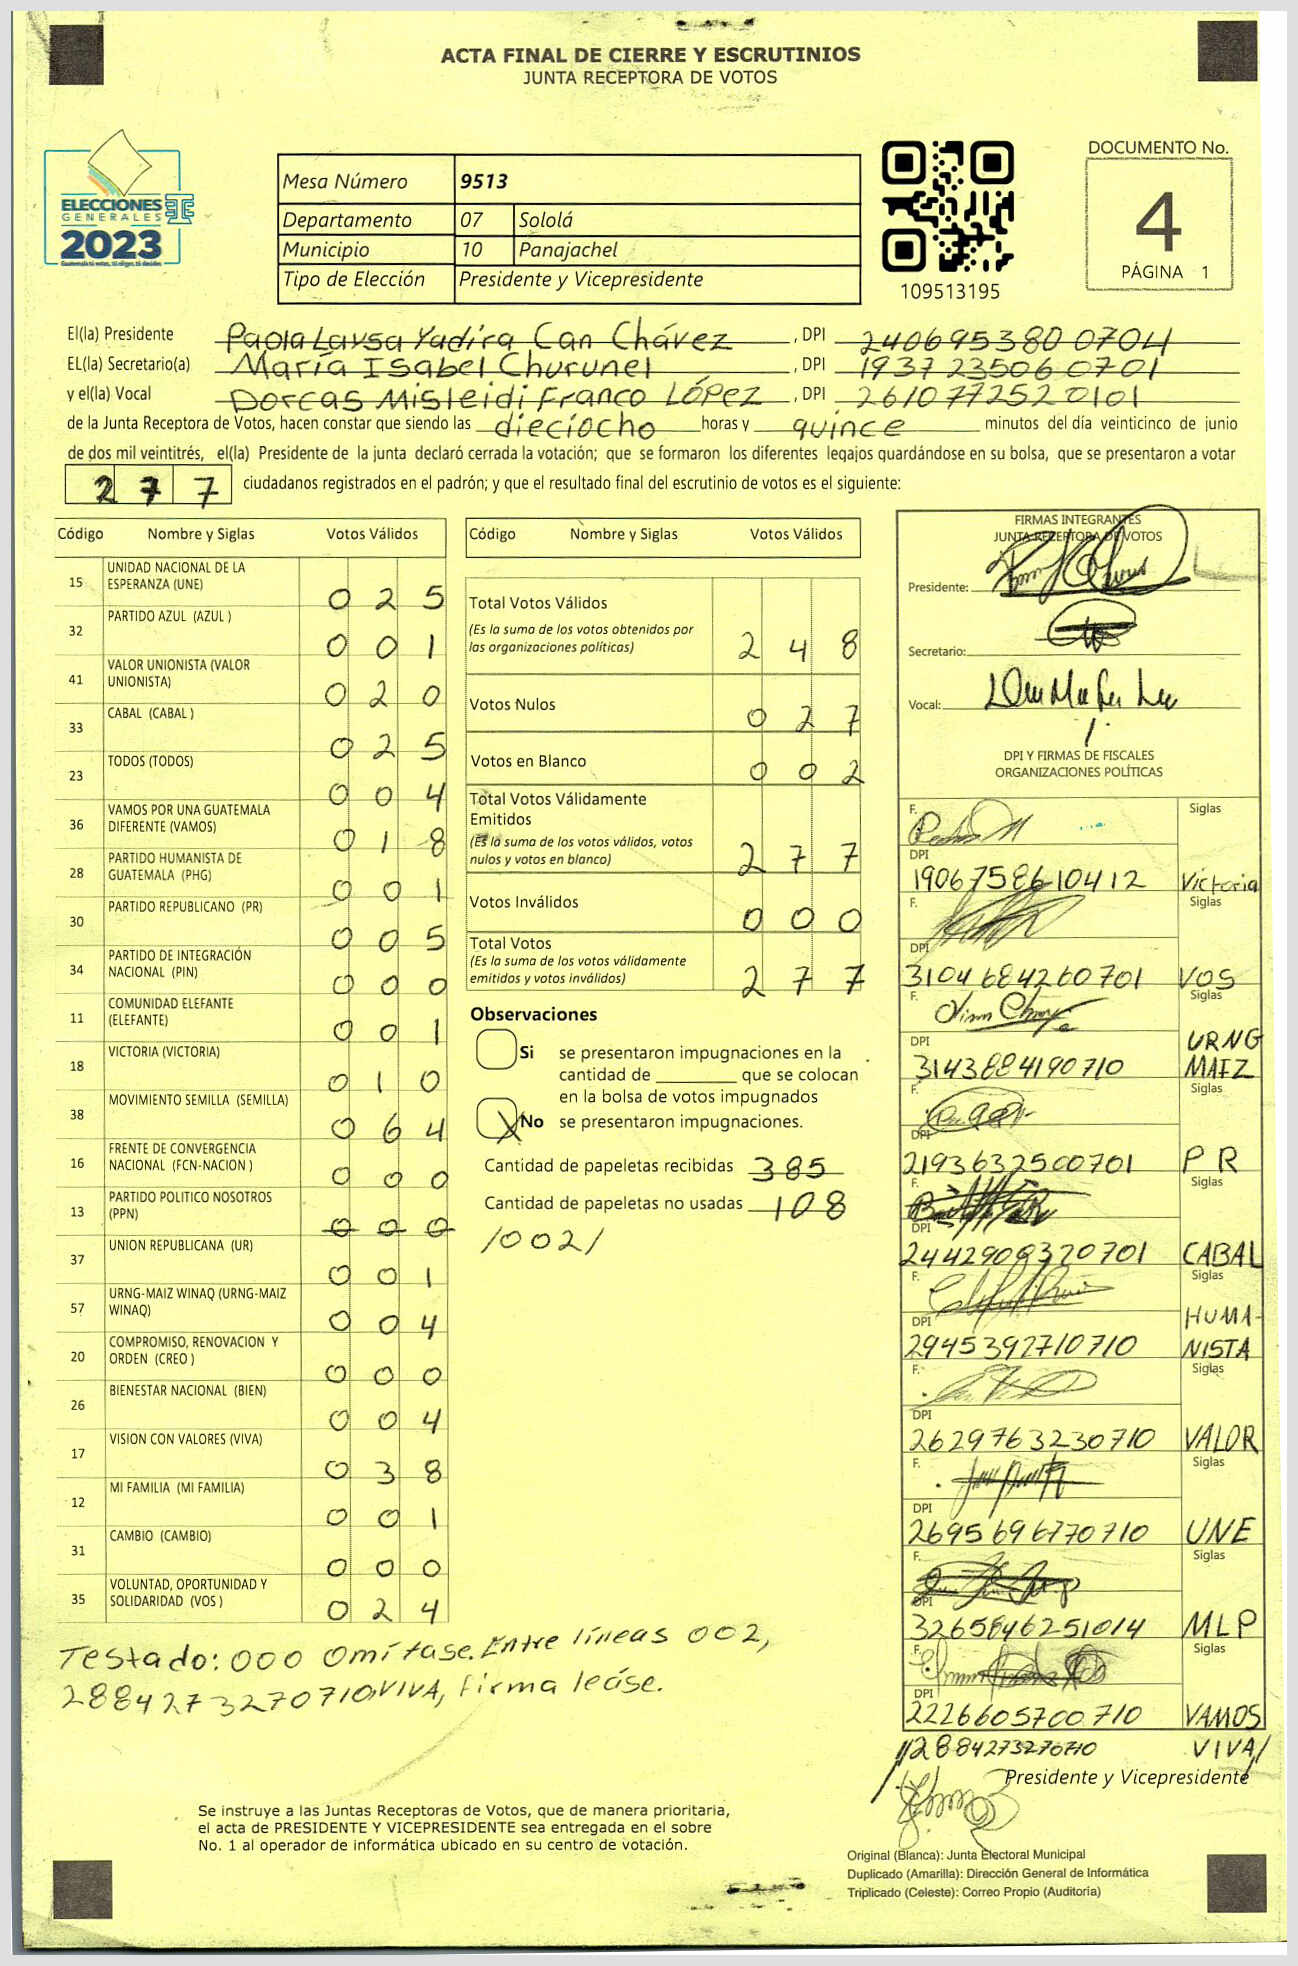 ACTA FINAL DE CIERRE Y ESCRUTINIOS
JUNTA RECEPTORA DE VOTOS
ELECCIONES
GENERALES
2023
Mesa Número 9513
Departamento 07 Sololá
Municipio 10 Panajachel
Tipo de Elección Presidente y Vicepresidente
109513195
DOCUMENTO No.
4
PÁGINA 1
El(la) Presidente Paola Laysa Yadira Can Chávez, DPI 240695380 0704
EL(la) Secretario(a) María Isabel Churunel, DPI 1937 23506 0701
y el(la) Vocal Dorcas Misleidi Franco López, DPI 261077252 0101
de la Junta Receptora de Votos, hacen constar que siendo las dieciocho horas y quince minutos del día veinticinco de junio
de dos mil veintitrés, el(la) Presidente de la junta declaró cerrada la votación; que se formaron los diferentes legajos guardándose en su bolsa, que se presentaron a votar
277 ciudadanos registrados en el padrón; y que el resultado final del escrutinio de votos es el siguiente:
Código Nombre y Siglas Votos Válidos
15 UNIDAD NACIONAL DE LA
ESPERANZA (UNE) 025
32 PARTIDO AZUL (AZUL ) 001
41 VALOR UNIONISTA (VALOR
UNIONISTA) 020
33 CABAL (CABAL ) 025
23 TODOS (TODOS) 004
36 VAMOS POR UNA GUATEMALA
DIFERENTE (VAMOS) 018
28 PARTIDO HUMANISTA DE
GUATEMALA (PHG) 001
30 PARTIDO REPUBLICANO (PR) 005
34 PARTIDO DE INTEGRACIÓN
NACIONAL (PIN) 000
11 COMUNIDAD ELEFANTE
(ELEFANTE) 001
18 VICTORIA (VICTORIA) 010
38 MOVIMIENTO SEMILLA (SEMILLA) 064
16 FRENTE DE CONVERGENCIA
NACIONAL (FCN-NACION ) 000
13 PARTIDO POLITICO NOSOTROS
(PPN) 000
37 UNION REPUBLICANA (UR) 001
57 URNG-MAIZ WINAQ (URNG-MAIZ
WINAQ) 004
20 COMPROMISO, RENOVACION Y
ORDEN (CREO ) 000
26 BIENESTAR NACIONAL (BIEN) 004
17 VISION CON VALORES (VIVA) 038
12 MI FAMILIA (MI FAMILIA) 001
31 CAMBIO (CAMBIO) 000
35 VOLUNTAD, OPORTUNIDAD Y
SOLIDARIDAD (VOS ) 024
Testado: 000 Omítase. Entre líneas 002,
2884273270710,VIVA, firma leáse.
Código Nombre y Siglas Votos Válidos
Total Votos Válidos
(Es la suma de los votos obtenidos por
las organizaciones políticas) 248
Votos Nulos 027
Votos en Blanco 002
Total Votos Válidamente
Emitidos
(Es la suma de los votos válidos, votos
nulos y votos en blanco) 277
Votos Inválidos 000
Total Votos
(Es la suma de los votos válidamente
emitidos y votos inválidos) 277
Observaciones
Si se presentaron impugnaciones en la
cantidad de ________ que se colocan
en la bolsa de votos impugnados
X No se presentaron impugnaciones.
Cantidad de papeletas recibidas 385
Cantidad de papeletas no usadas 108
/002/
FIRMAS INTEGRANTES
JUNTA RECEPTORA DE VOTOS
Presidente:
Secretario:
Vocal:
DPI Y FIRMAS DE FISCALES
ORGANIZACIONES POLÍTICAS
F. Siglas
DPI
1906758610412 Victoria
F. Siglas
DPI
3104684260701 VOS
F. Siglas
DPI URNG
3143884190710 MAIZ
F. Siglas
DPI
2193632500701 PR
F. Siglas
DPI
2442909320701 CABAL
F. Siglas
DPI HUMA-
2945392710710 NISTA
F. Siglas
DPI
2629763230710 VALOR
F. Siglas
DPI
2695696770710 UNE
F. Siglas
DPI
3265846251014 MLP
F. Siglas
DPI
2226605700710 VAMOS
//2884273270710 VIVA/
Presidente y Vicepresidente
Se instruye a las Juntas Receptoras de Votos, que de manera prioritaria,
el acta de PRESIDENTE Y VICEPRESIDENTE sea entregada en el sobre
No. 1 al operador de informática ubicado en su centro de votación.
Original (Blanca): Junta Electoral Municipal
Duplicado (Amarilla): Dirección General de Informática
Triplicado (Celeste): Correo Propio (Auditoría)